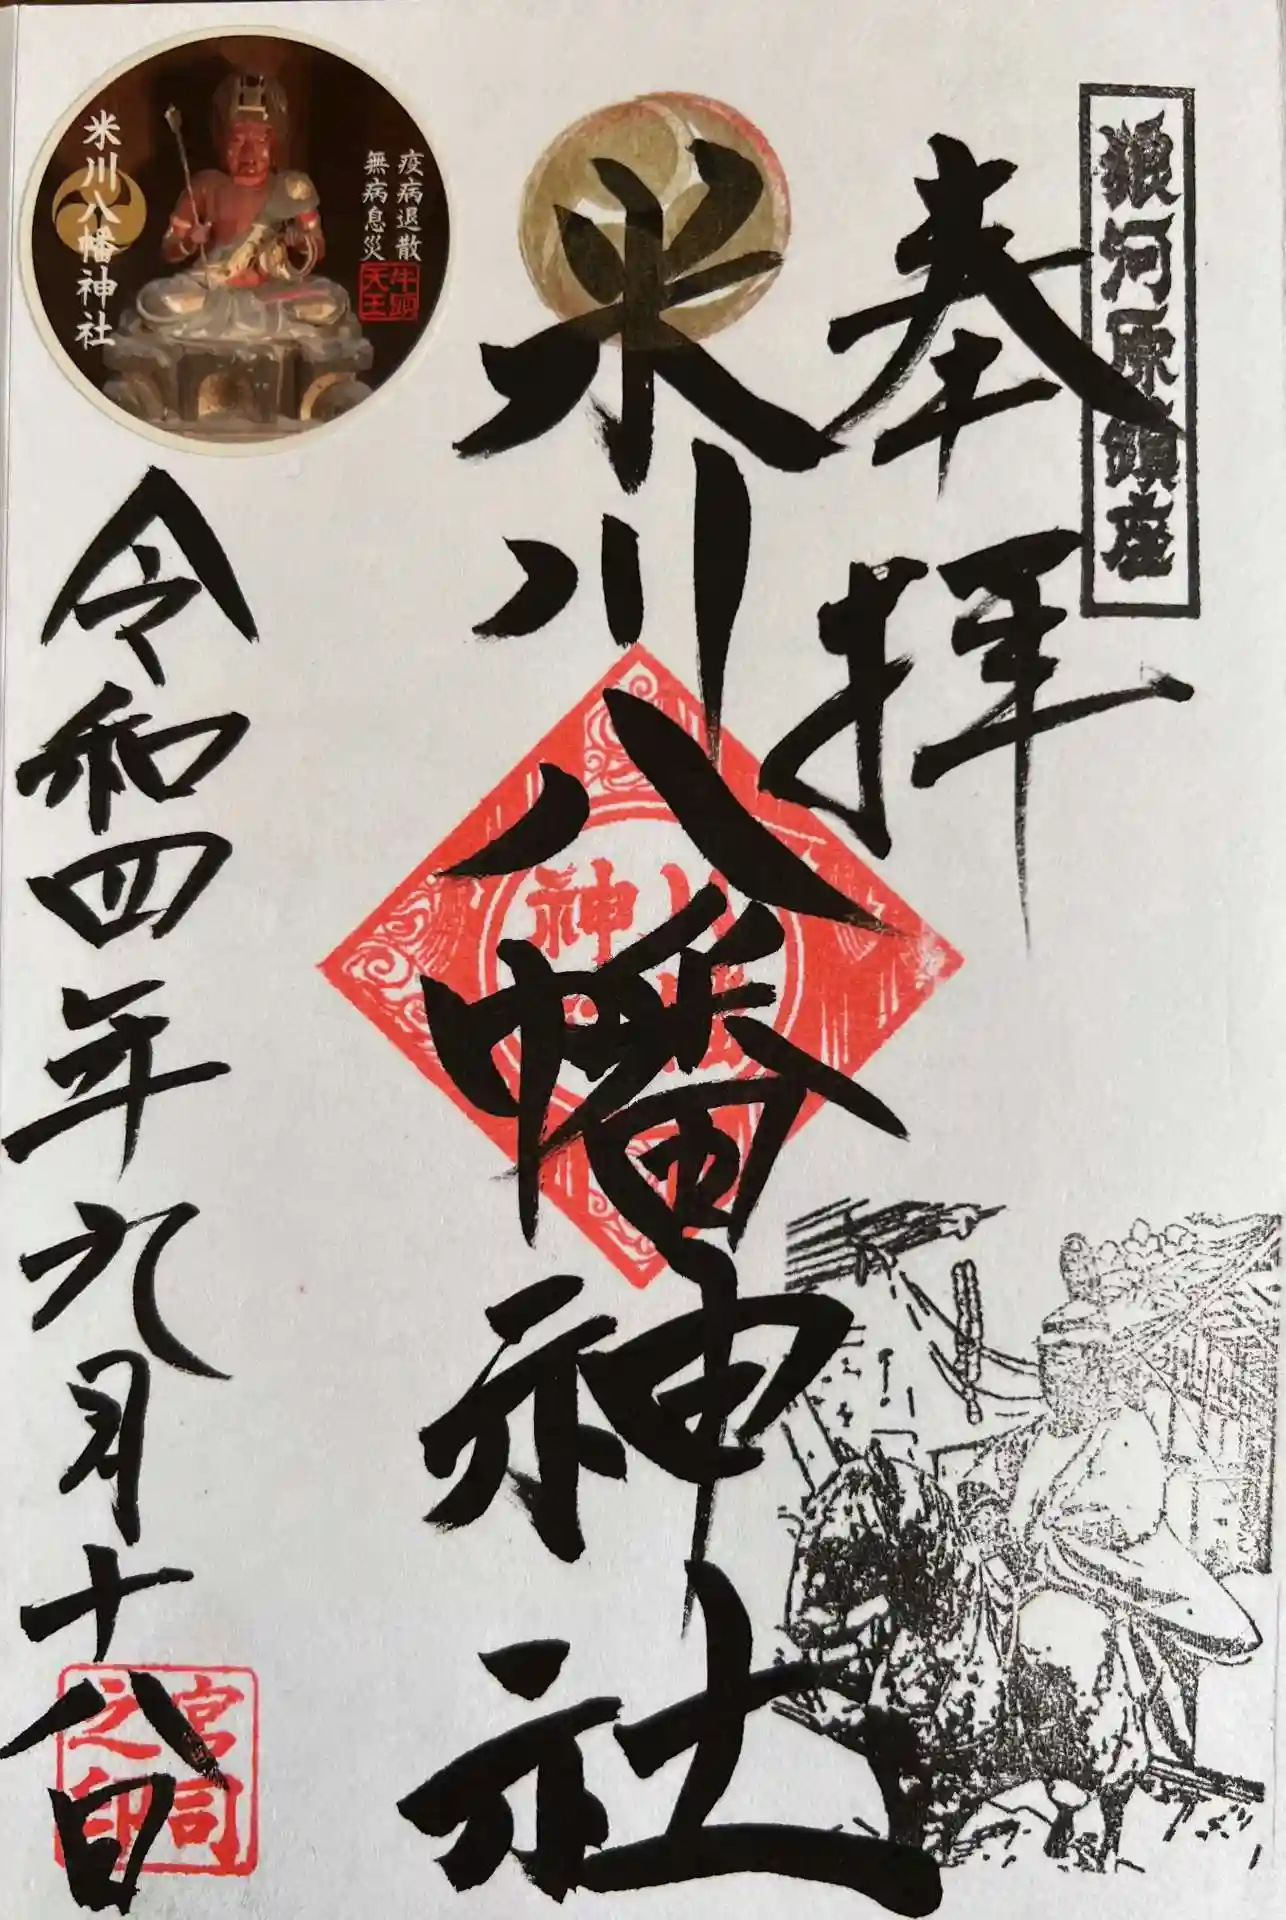 狼河原鎮座
奉拝
米川八幡神社
疫病退散
無病息災
牛頭
天王
米川八幡神社
令和四年九月十八日
宮司
之印